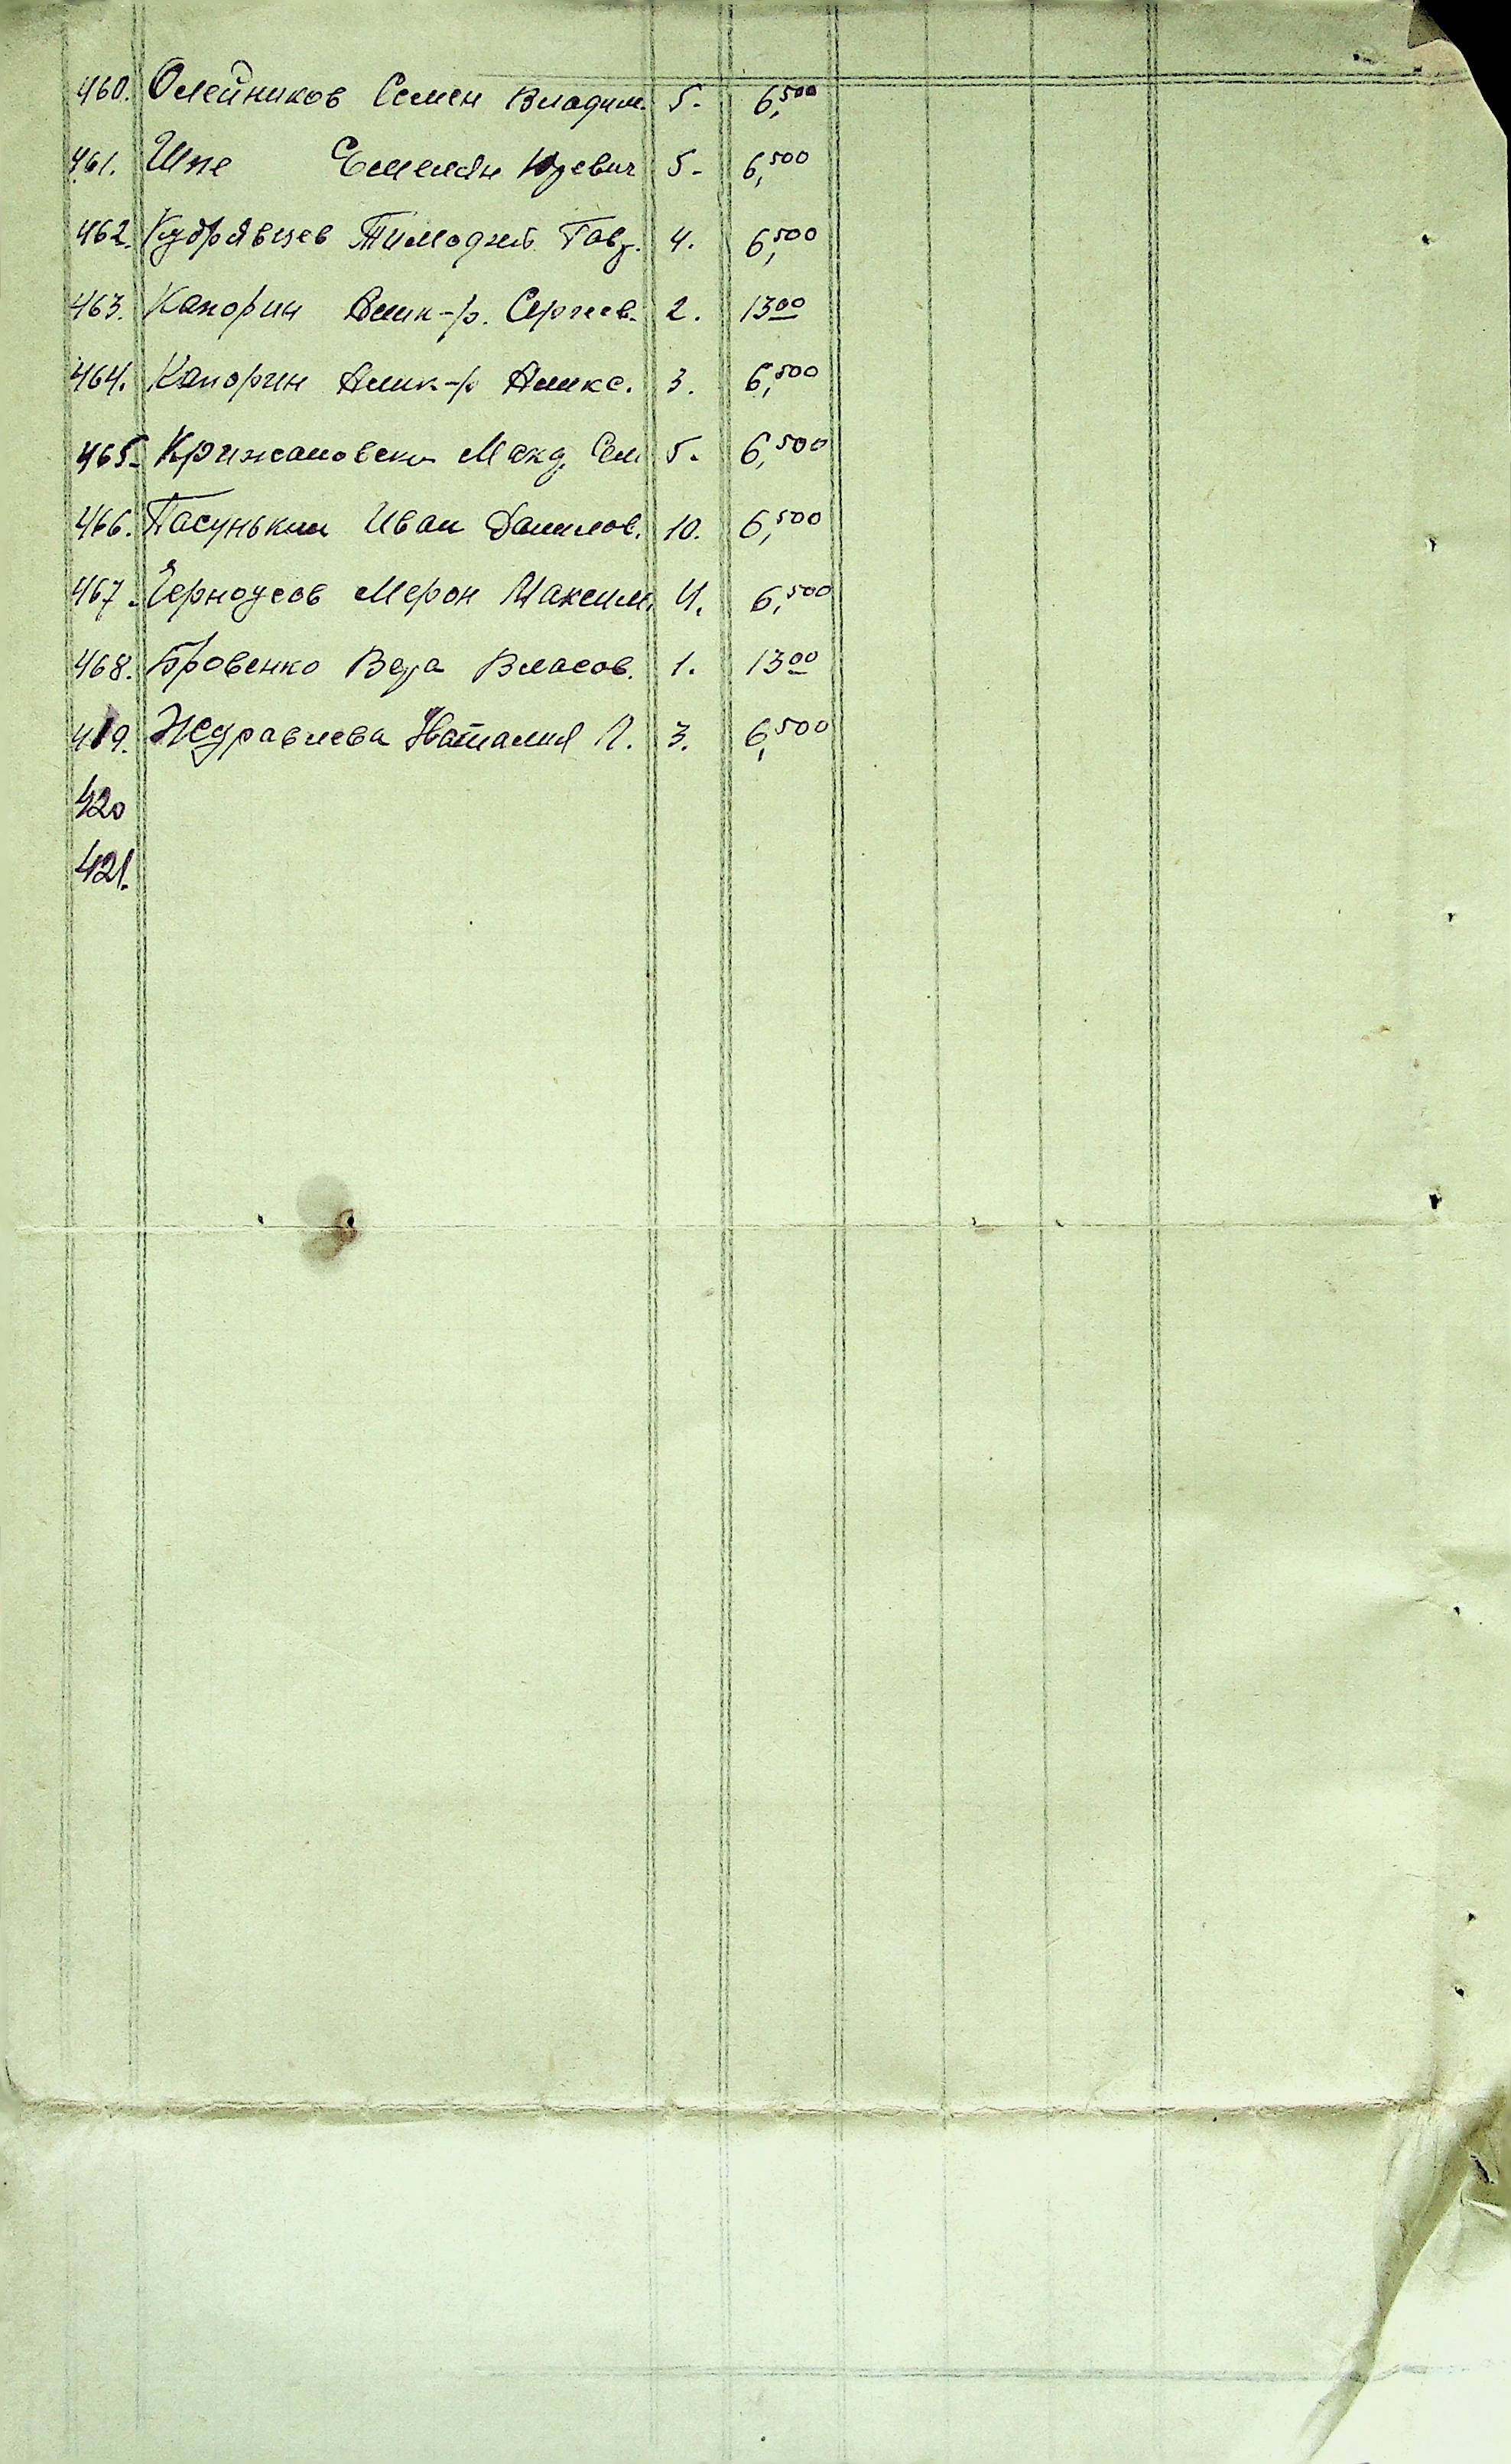 460. Олейников Семен Владим. 5. 6,500
461. Шпе Емельян Юревич 5. 6,500
462. Кудрявцев Тимофей Гавр. 4. 6,500
463. Капорин Алик-р. Сергеев. 2. 1300
464. Капорин Алик-р Аликс. 3. 6,500
465. Крижановски Сем 5. 6,500
466. Пасунькин Иван Данилов. 10. 6,500
467. Черноусов Мерон Максим. 4. 6,500
468. Бровенко Вера Власов. 1. 1300
419. Журавлева Наталия П. 3. 6,500
420
421.